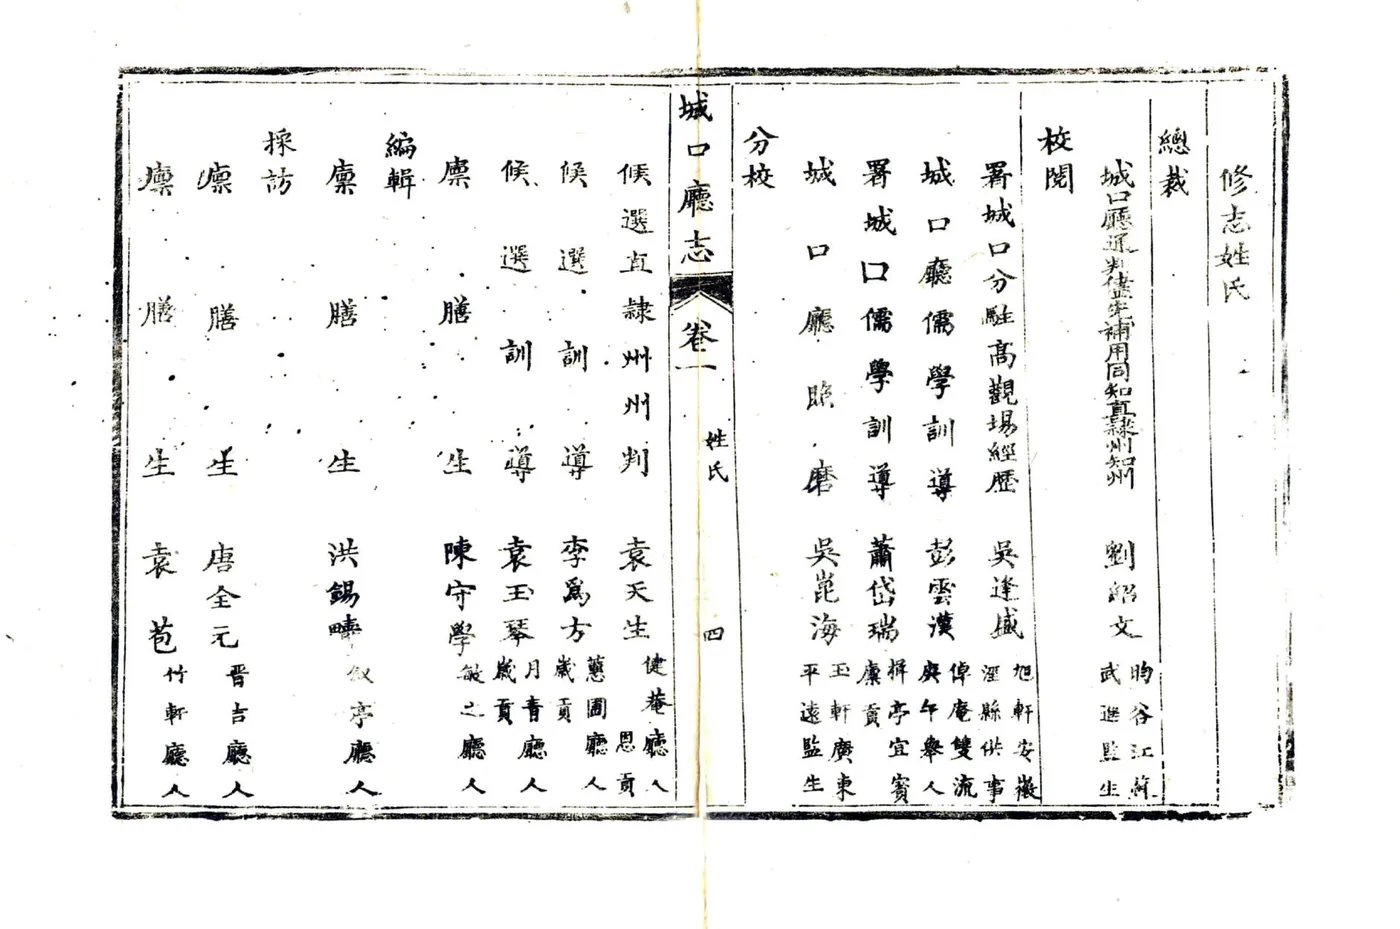 修志姓氏
總裁
城口廳通判儘先補用同知直隸州知州 劉紹文 昀谷江蘇武進監生
校閱
署城口分駐高觀場經歷 吳逢盛 旭軒安徽涇縣供事
城口廳儒學訓導 彭雲漢 倬庵雙流庚午舉人
署城口儒學訓導 蕭岱瑞 輯亭宜賓廩貢
城口廳照磨 吳崑海 玉軒廣東平遠監生
分校
城口廳志 卷一 姓氏 四
候選直隸州州判 袁天生 健菴廳人恩貢
候選訓導 李爲方 蕙圃廳人歲貢
候選訓導 袁玉琴 月青廳人歲貢
廩膳生 陳守學 敏之廳人
編輯
廩膳生 洪錫疇 叙亭廳人
採訪
廩膳生 唐全元 晋吉廳人
廩膳生 袁苞 竹軒廳人